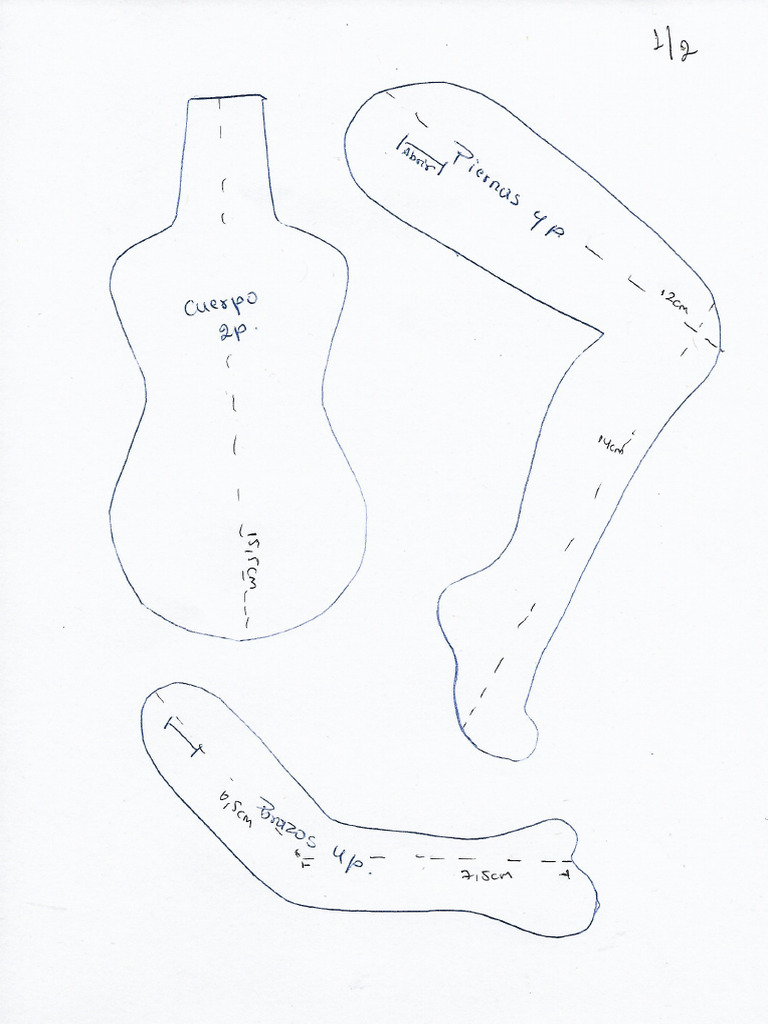 1/2
Abrir
Piernas 4p.
12cm
Cuerpo
2p.
14cm
15,5cm
6,5cm
Brazos 4p.
7,5cm